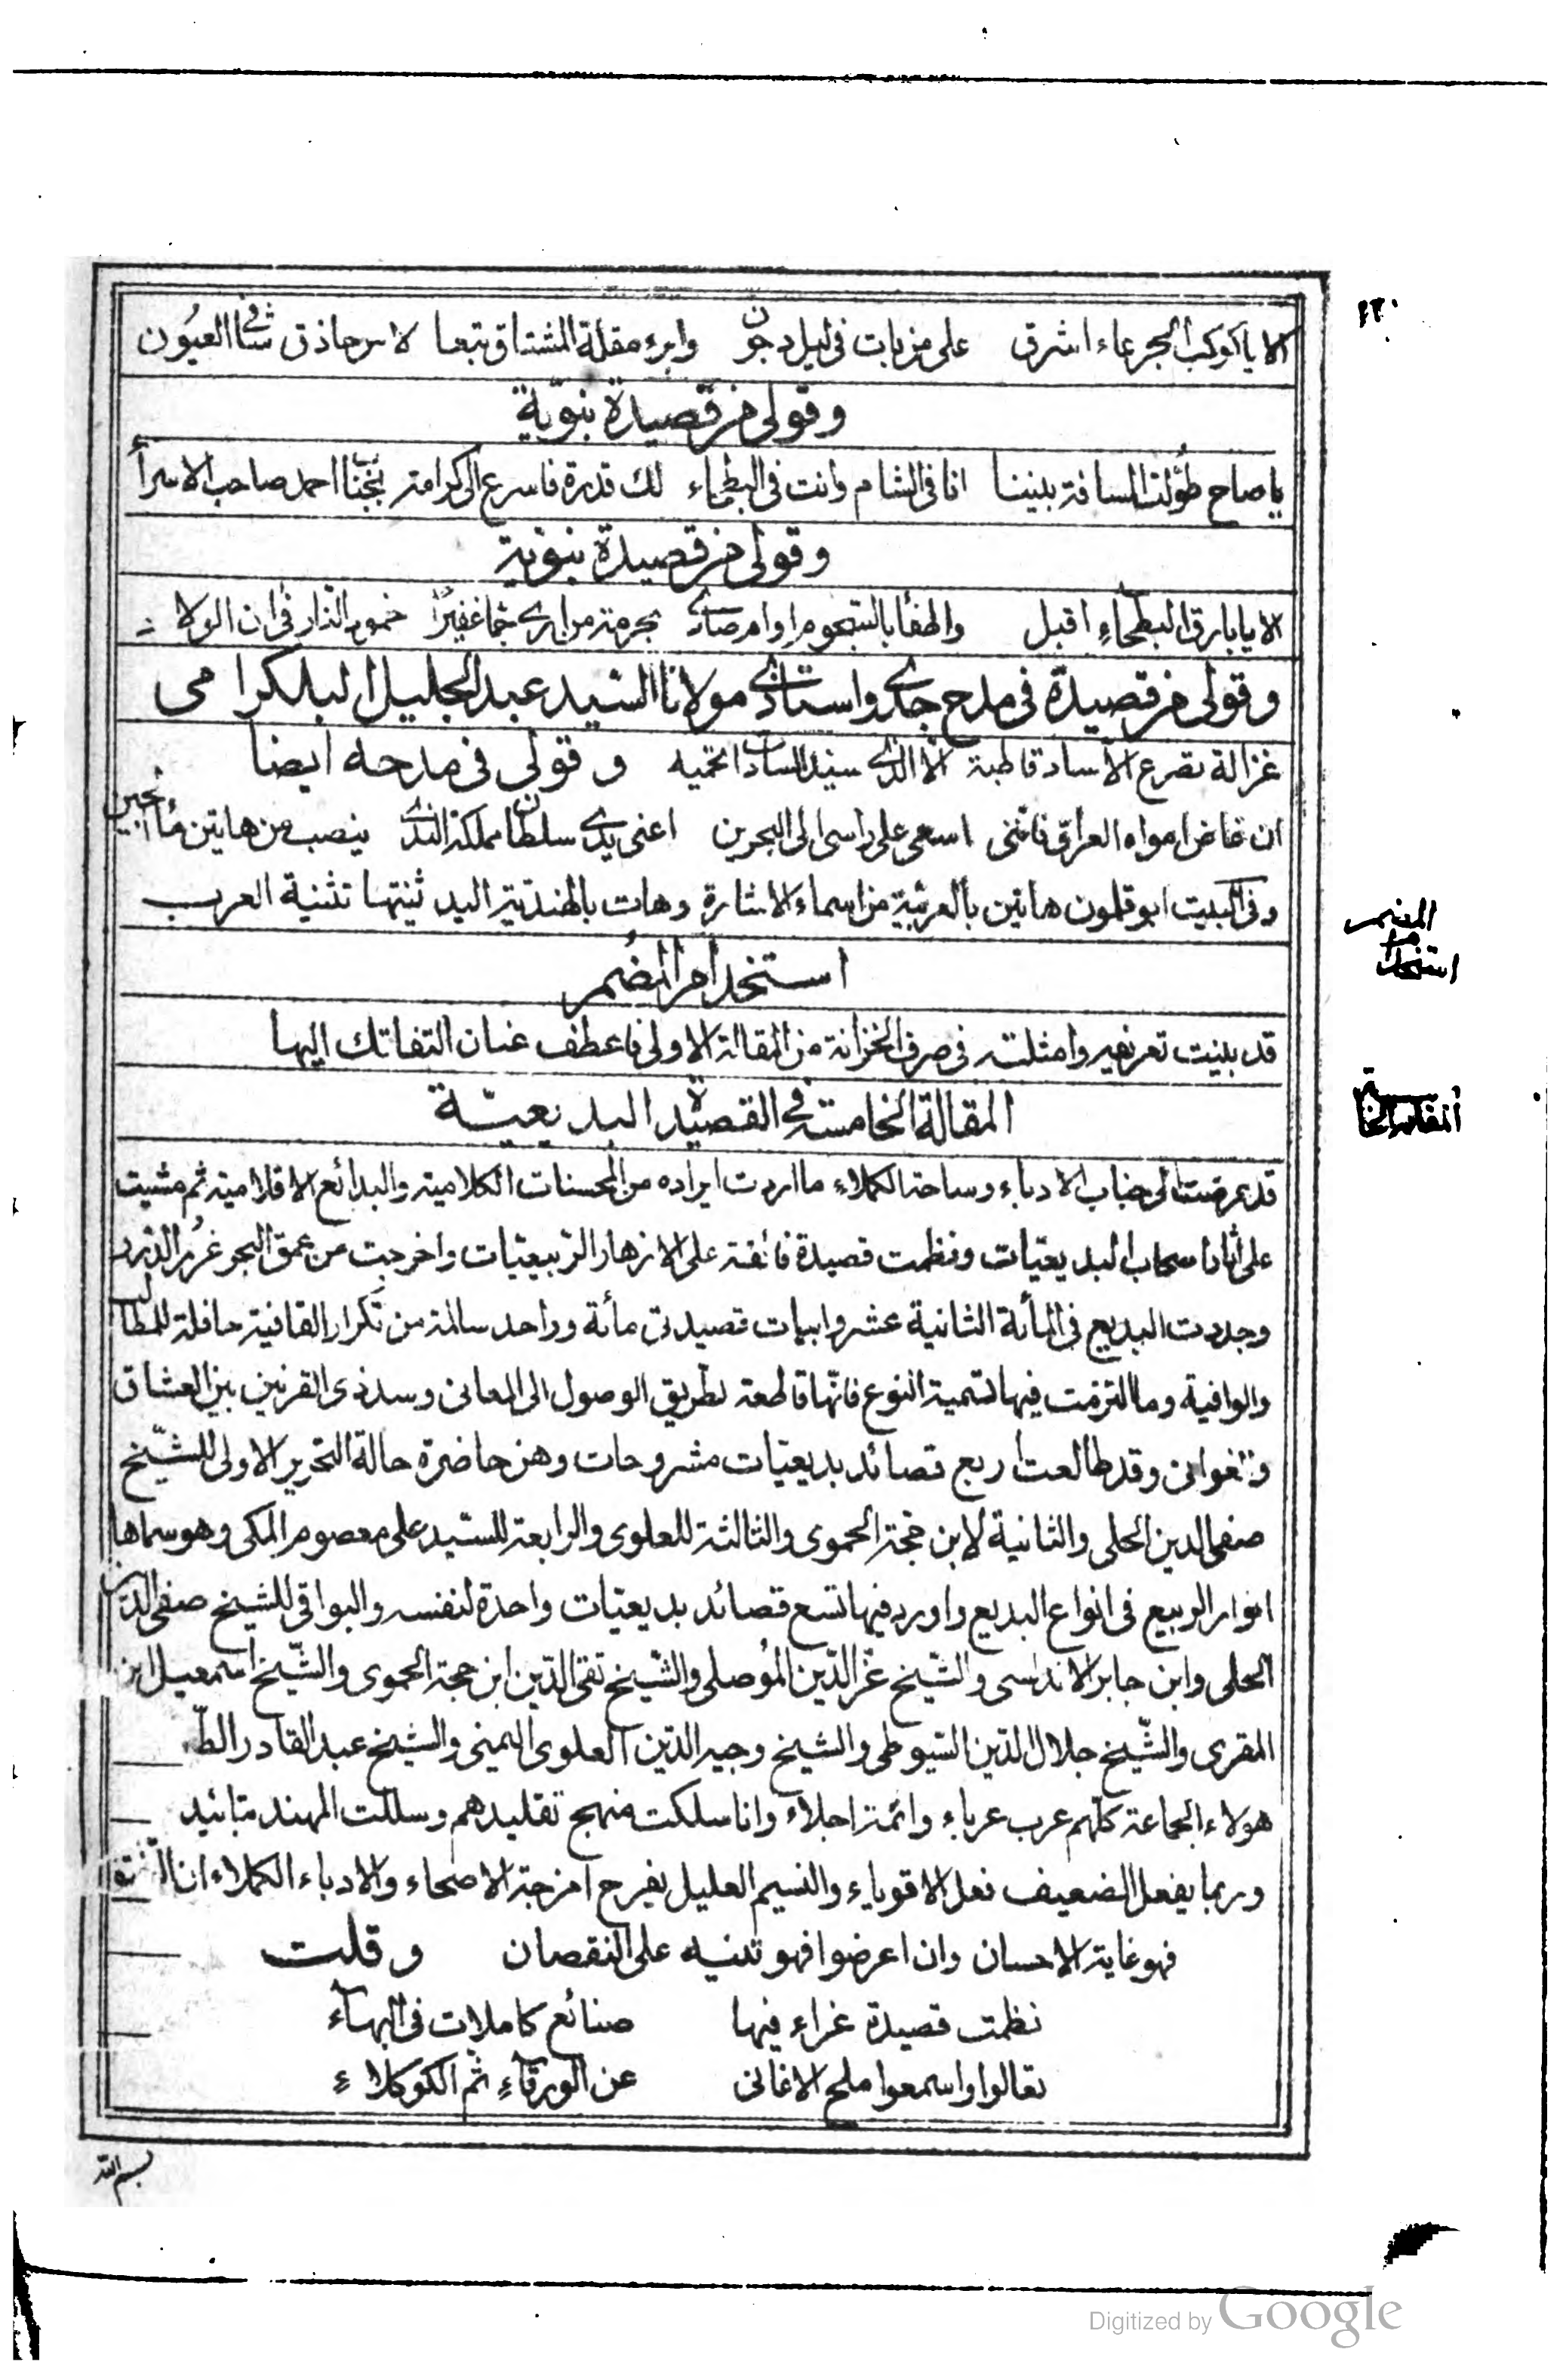 ٢٢٠
الا يا كوكب الجرعاء اشرق على من بات فى ليل دجون وابرء مقلة المشتاق تبعا لامر حاذق شافى العيون
وقولى من قصيدة نبوية
يا صاح طوّلت المسافة بيننا انا فى الشام وانت فى البطحاء لك قدرة فاسرع الى كرامة نجّنا احمد صاحب الاسرا
وقولى من قصيدة نبوية
الا يا بارق البطحاء اقبل واطفأ بالسجوم اوام صادى بحرمة من ارى جما غفيرًا خمود النار فى ان الولاد
وقولى من قصيدة فى مدح جدى واستاذى مولانا السيد عبد الجليل البلكرامى
غزالة تصرع الآساد قاطبة الا الذى سيد السادات تحميه وقولى فى مدحه ايضا
ان غاض امواه العراق فاننى اسعى على راسى الى البحرين اعنى يدى سلطان مملكة الندى ينصب من هاتين ماء لجين
وفى البيت ابو قلمون هاتين بالعربية من اسماء الاشارة وهات بالهندية اليد ثنيتها تثنية العرب
استخدام المضمر
المضمر
استخدام
قد بينت تعريفه وامثلته فى صرف الخزانة من المقالة الاولى فاعطف عنان التفاتك اليها
المقالة الخامسة فى القصيدة البديعيّة
المقالة الخامسة
قد عرضت الى جناب الادباء وساحة الكملاء ما اردت ايراده من المحسنات الكلامية والبدائع الاقلامية ثم مشيت
على اثار اصحاب البديعيّات ونظمت قصيدة فائقة على الازهار الربيعيّات واخرجت من عمق البحر غرر الدرر
وجددت البديع فى المأة الثانية عشر وابيات قصيدتى مأة وواحد سالمة من تكرار القافية حافلة للمطالب
والوافية وما التزمت فيها تسمية النوع فانّها قاطعة لطريق الوصول الى المعانى وسد ذى القرنين بين العشاق
والغوانى وقد طالعت اربع قصائد بديعيّات مشروحات وهن حاضرة حالة التحرير الاولى للشيخ
صفى الدين الحلى والثانية لابن حجة الحموى والثالثة للعلوى والرابعة للسيد على معصوم المكى وهو سماها
انوار الربيع فى انواع البديع واورد فيها تسع قصائد بديعيّات واحدة لنفسه والبواقى للشيخ صفى الدين
الحلى وابن جابر الاندلسى والشيخ عز الدّين الموصلى والشيخ تقى الدّين ابن حجة الحموى والشّيخ اسمعيل ابن
المقرى والشّيخ جلال الدّين السّيوطى والشيخ وجيه الدّين العلوى اليمنى والشيخ عبد القادر الط
هولاء الجماعة كلّهم عرب عرباء وائمة اجلاء وانا سلكت منهج تقليدهم وسللت المهند بتائيد
وربما يفعل الضعيف فعل الاقوياء والنسيم العليل يفرح امزجة الاصحاء والادباء الكملاء ان
فهو غاية الاحسان وان اعرضوا فهو تنبيه على النقصان وقلت
نظمت قصيدة غراء فيها صنائع كاملات فى البهآء
تعالوا واسمعوا ملح الاغانى عن الورقآء ثم الكوكلاء
بسم الله
Digitized by Google